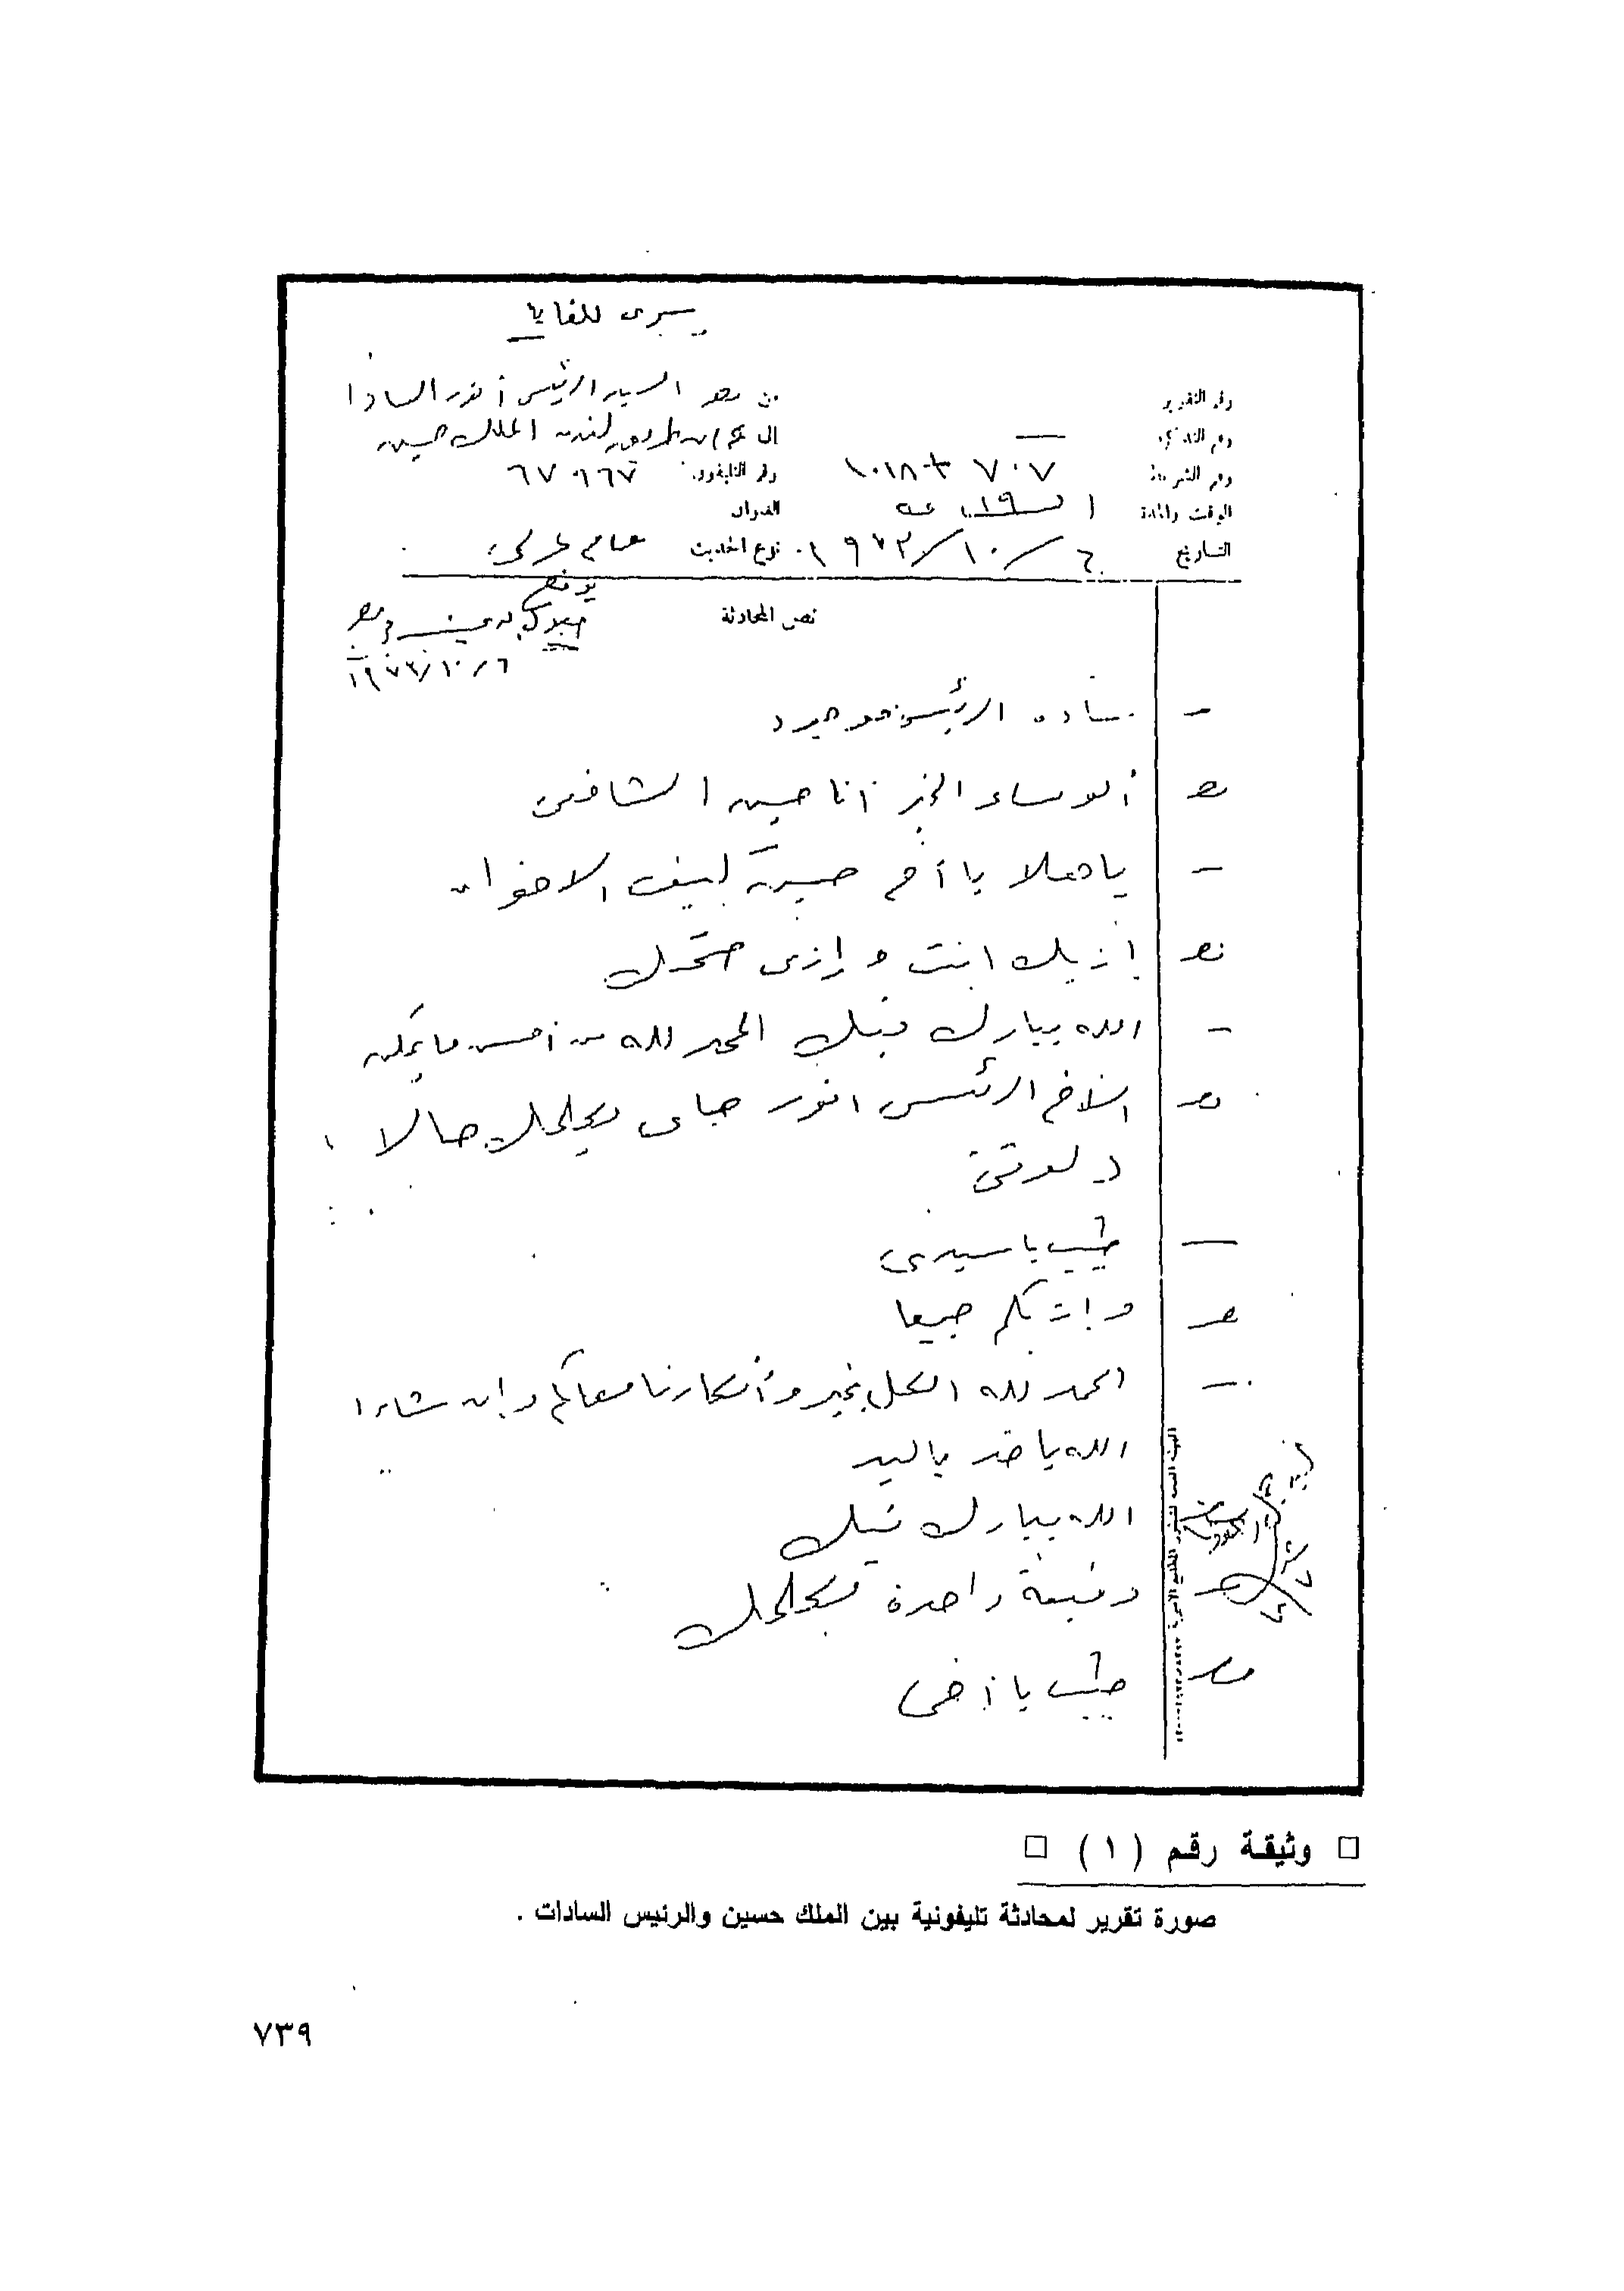 سرى للغاية
رقم التقرير
من مصر السيد الرئيس أنور السادا
رقم التذكرة —
الى عمان طريق لندن الملك حسين
رقم الشريط ٧٠٧
رقم التليفون ٦٧٠٩٦٧
الوقت والمدة ١٩
العنوان
التاريخ ٦/١٠/١٩٧٣
نوع الحديث
نص المحادثة
٦/١٠/١٩٧٣
— سيادة الرئيس موجود
مصر ألو مساء الخير أنا حسين الشافعى
— يا هلا يا أخ حسين كيف الاخوان
مصر إزيك انت وإزى صحتك
— الله يبارك فيك الحمد لله من أحسن ما يمكن
مصر الأخ الرئيس انور جاى يكلمك حالا
دلوقتى
— طيب يا سيدى
مصر وازيكم جميعا
— الحمد لله الكل بخير وأفكارنا معاكم وإن شاء ا
الله يا
الله يبارك فيك
دقيقة واحدة يكلمك
مصر طيب يا أخى
□ وثيقة رقم (١) □
صورة تقرير لمحادثة تليفونية بين الملك حسين والرئيس السادات .
٧٣٩